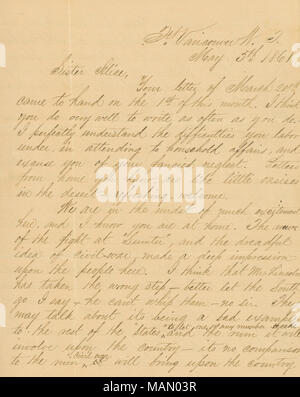 Ft Vancouver W. T.
May 5th, 1861
Sister Alice,
Your letter of March 20th
came to hand on the 1st of this month. I think
you do very well to write as often as you do.
I perfectly understand the difficulties you labor
under in attending to household affairs, and
excuse you of your fancied neglect. Letters
from home to us are like little oasises
in the desert, refreshing, welcome.
We are in the midst of much excitement
here, and I know you are at home. The news
of the fight at "Sumter", and the dreadful
idea of civil war, made a deep impression
upon the people here. I think that Mr Lincoln
has taken the wrong step – better let the South
go I say – he can't whip them – no sir. They
may talk about its being a bad example
to the rest of the states, and the ruin it will
involve upon the country – its no comparison
to the ruin civil war will bring upon the country
alamy
Image ID: MAN03R
www.alamy.com